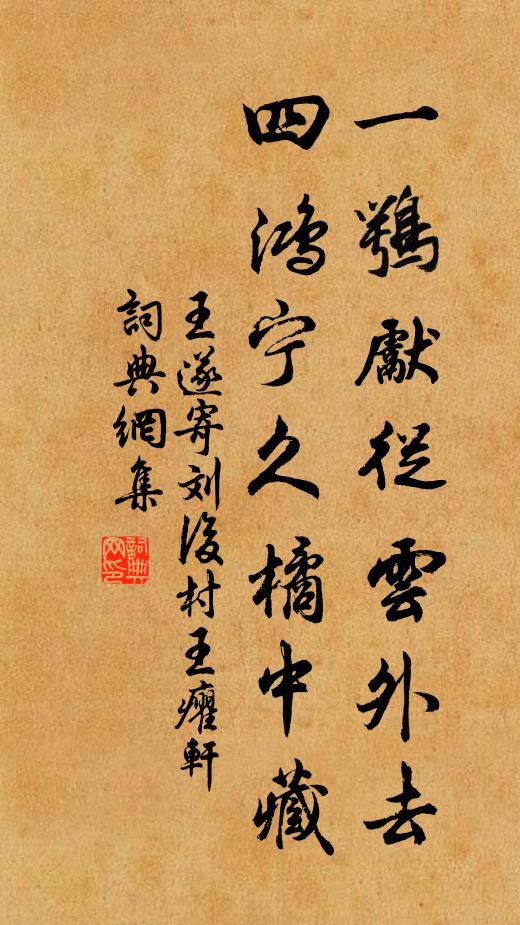 一鶚獻從雲外去
四鴻宁久橘中藏
王遂寄刘後村王癯軒
詞典網集
詞典網印